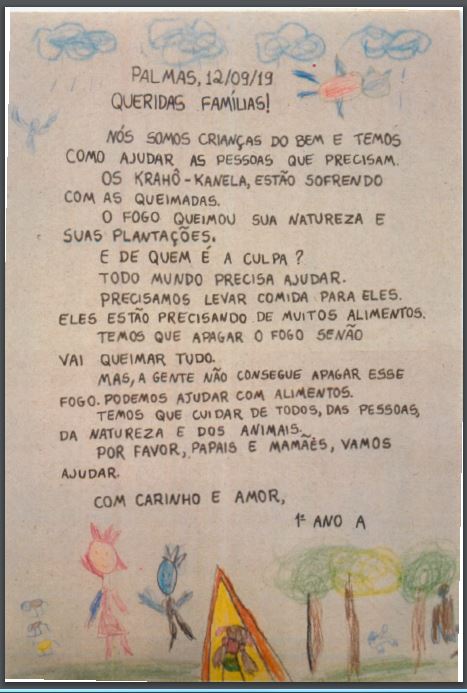 PALMAS, 12/09/19
QUERIDAS FAMÍLIAS!
NÓS SOMOS CRIANÇAS DO BEM E TEMOS
COMO AJUDAR AS PESSOAS QUE PRECISAM.
OS KRAHÔ-KANELA, ESTÃO SOFRENDO
COM AS QUEIMADAS.
O FOGO QUEIMOU SUA NATUREZA E
SUAS PLANTAÇÕES.
E DE QUEM É A CULPA?
TODO MUNDO PRECISA AJUDAR.
PRECISAMOS LEVAR COMIDA PARA ELES.
ELES ESTÃO PRECISANDO DE MUITOS ALIMENTOS.
TEMOS QUE APAGAR O FOGO SENÃO
VAI QUEIMAR TUDO.
MAS, A GENTE NÃO CONSEGUE APAGAR ESSE
FOGO. PODEMOS AJUDAR COM ALIMENTOS.
TEMOS QUE CUIDAR DE TODOS, DAS PESSOAS,
DA NATUREZA E DOS ANIMAIS.
POR FAVOR, PAPAIS E MAMÃES, VAMOS
AJUDAR.
COM CARINHO E AMOR,
1º ANO A